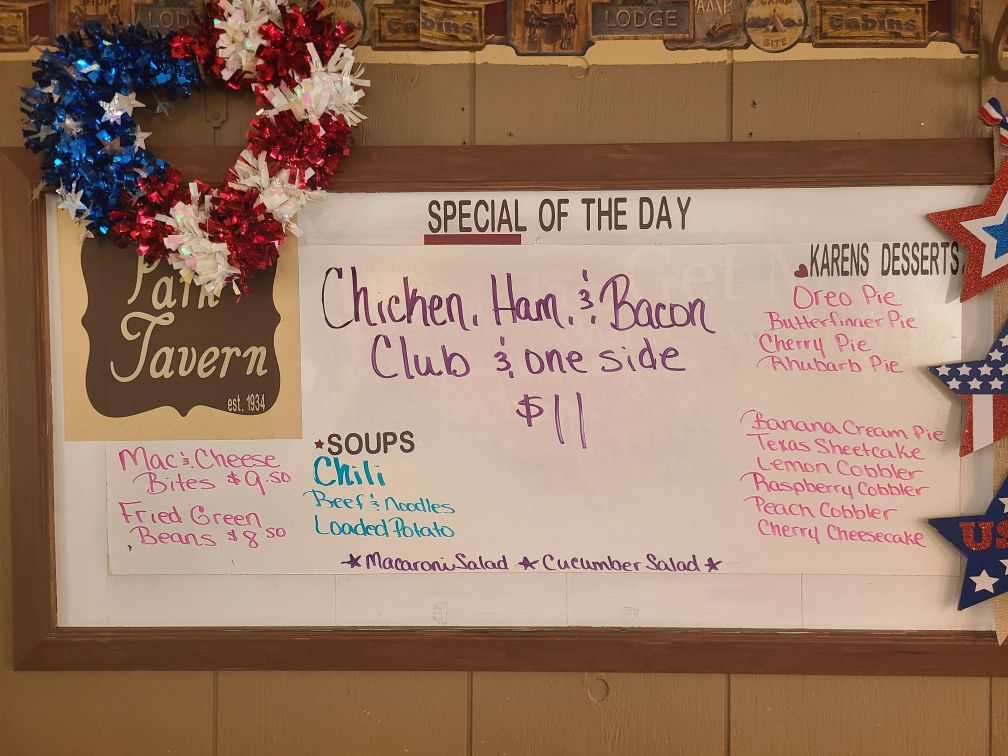 LODGE
CAMP
SITE
Cabins
Cabins
SPECIAL OF THE DAY
Tavern
est. 1934
Chicken, Ham, & Bacon
Club & one side
$11
Mac & Cheese
Bites $9.50
Fried Green
Beans $8.50
★SOUPS
Chili
Beef & Noodles
Loaded Potato
★ Macaroni Salad ★ Cucumber Salad ★
♥KARENS DESSERTS
Oreo Pie
Butterfinger Pie
Cherry Pie
Rhubarb Pie
Banana Cream Pie
Texas Sheetcake
Lemon Cobbler
Raspberry Cobbler
Peach Cobbler
Cherry Cheesecake
US